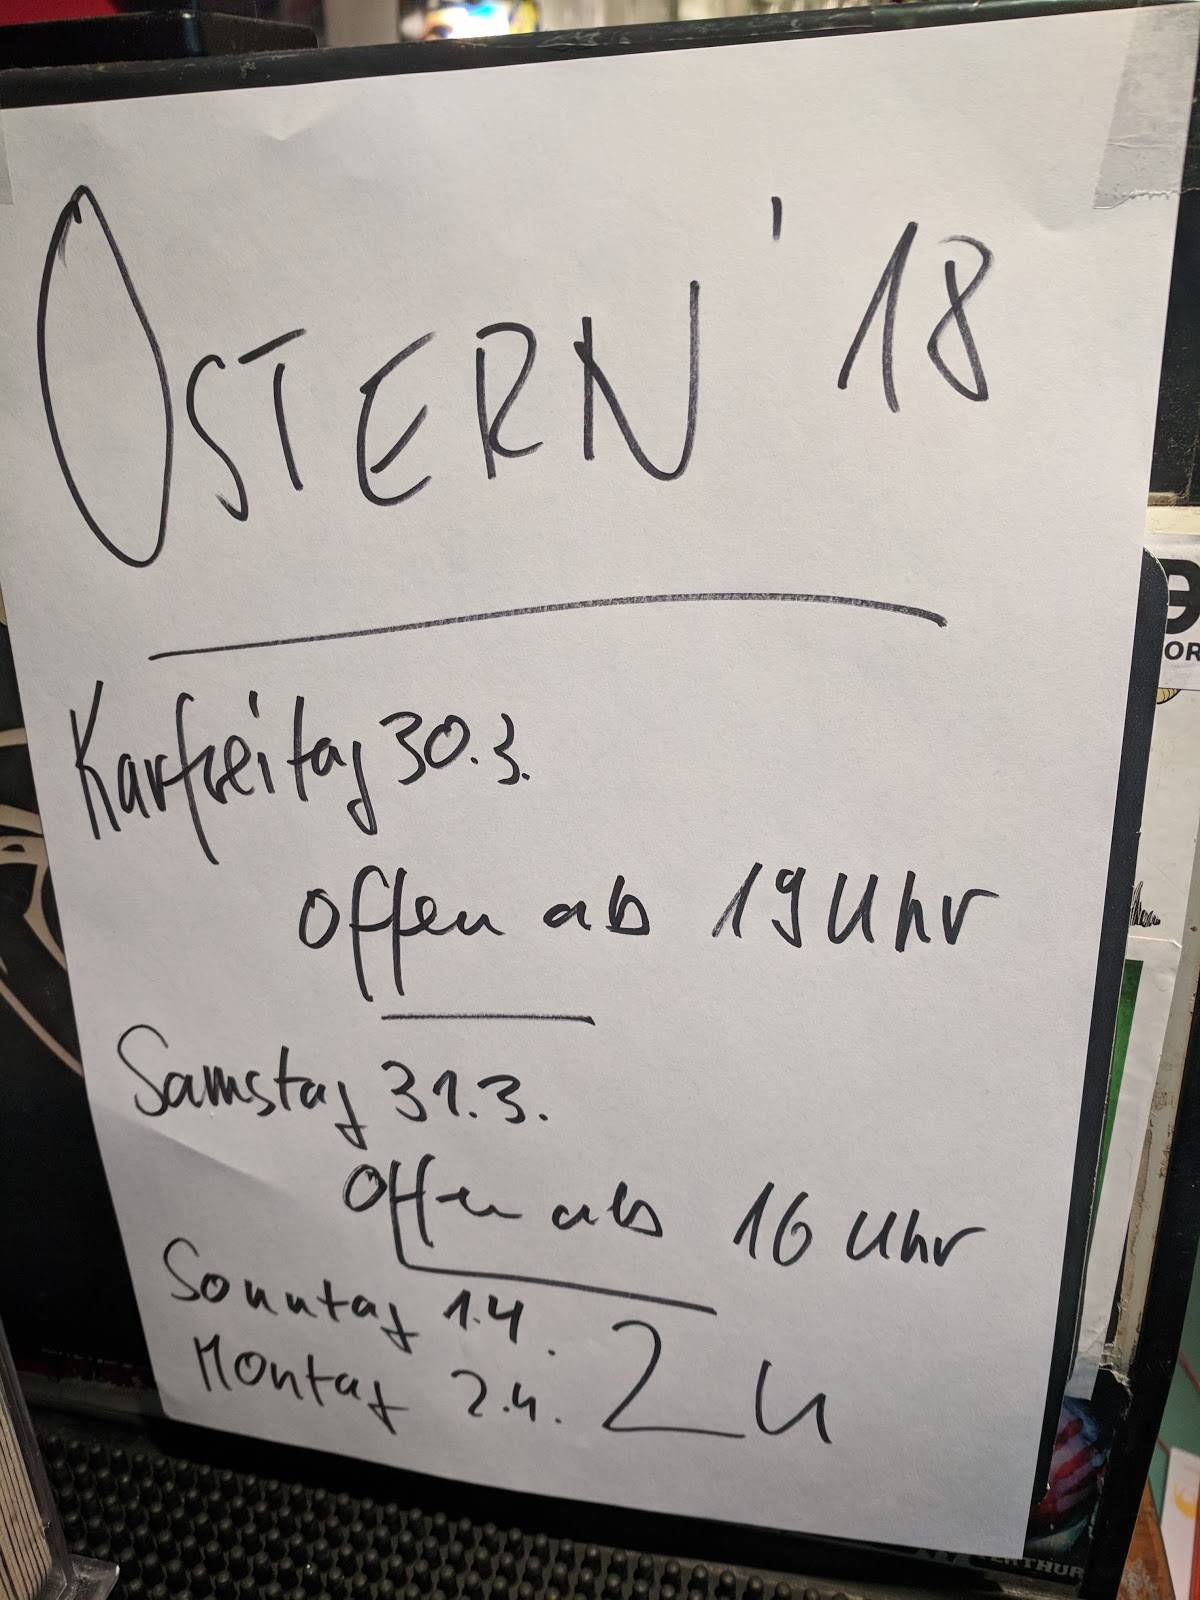 OSTERN '18
Karfreitag 30.3.
Offen ab 19 Uhr
Samstag 31.3.
Offen ab 16 Uhr
Sonntag 1.4.
Montag 2.4. Zu
OR